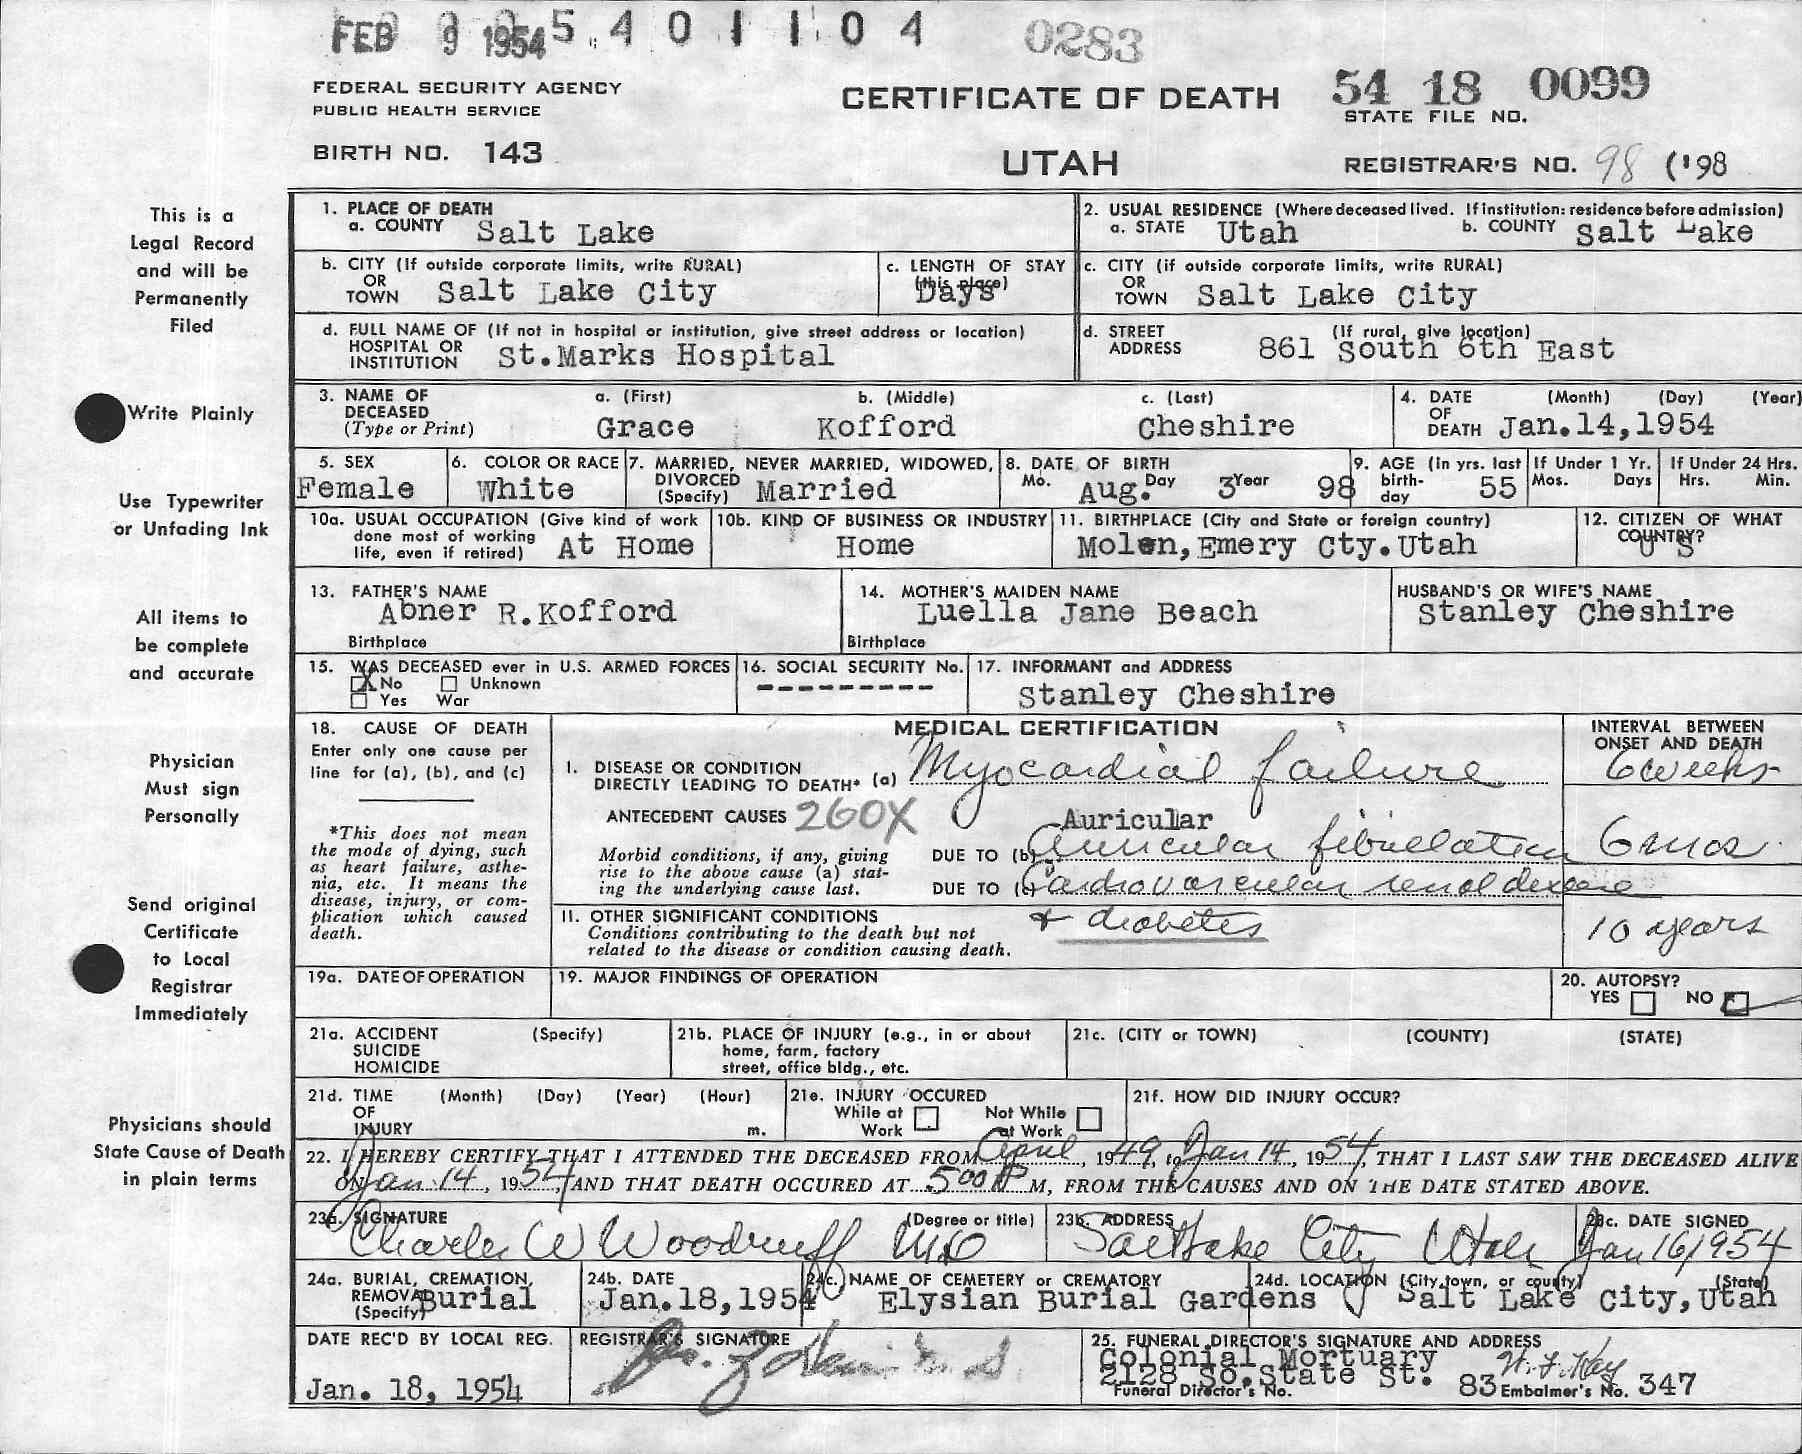 FEB 9 1954 5 4 0 1 1 0 4 0283
FEDERAL SECURITY AGENCY
PUBLIC HEALTH SERVICE
CERTIFICATE OF DEATH
54 18 0099
STATE FILE NO.
BIRTH NO. 143
UTAH
REGISTRAR'S NO. 98 ('98
This is a
Legal Record
and will be
Permanently
Filed
Write Plainly
Use Typewriter
or Unfading Ink
All items to
be complete
and accurate
Physician
Must sign
Personally
Send original
Certificate
to Local
Registrar
Immediately
Physicians should
State Cause of Death
in plain terms
1. PLACE OF DEATH
a. COUNTY Salt Lake
2. USUAL RESIDENCE (Where deceased lived. If institution: residence before admission)
a. STATE Utah b. COUNTY Salt Lake
b. CITY (If outside corporate limits, write RURAL)
OR
TOWN Salt Lake City
c. LENGTH OF STAY
(this place)
Days
c. CITY (if outside corporate limits, write RURAL)
OR
TOWN Salt Lake City
d. FULL NAME OF (If not in hospital or institution, give street address or location)
HOSPITAL OR
INSTITUTION St.Marks Hospital
d. STREET (If rural, give location)
ADDRESS 861 South 6th East
3. NAME OF
DECEASED
(Type or Print)
a. (First) b. (Middle) c. (Last)
Grace Kofford Cheshire
4. DATE (Month) (Day) (Year)
OF
DEATH Jan.14,1954
5. SEX
Female
6. COLOR OR RACE
White
7. MARRIED, NEVER MARRIED, WIDOWED,
DIVORCED
(Specify) Married
8. DATE OF BIRTH
Mo. Aug. Day 3 Year 98
9. AGE (In yrs. last
birth-
day 55
If Under 1 Yr.
Mos. Days
If Under 24 Hrs.
Hrs. Min.
10a. USUAL OCCUPATION (Give kind of work
done most of working
life, even if retired) At Home
10b. KIND OF BUSINESS OR INDUSTRY
Home
11. BIRTHPLACE (City and State or foreign country)
Molen,Emery Cty.Utah
12. CITIZEN OF WHAT
COUNTRY?
U S
13. FATHER'S NAME
Abner R.Kofford
Birthplace
14. MOTHER'S MAIDEN NAME
Luella Jane Beach
Birthplace
HUSBAND'S OR WIFE'S NAME
Stanley Cheshire
15. WAS DECEASED ever in U.S. ARMED FORCES
X No Unknown
Yes War
16. SOCIAL SECURITY No.
---------
17. INFORMANT and ADDRESS
Stanley Cheshire
18. CAUSE OF DEATH
Enter only one cause per
line for (a), (b), and (c)
*This does not mean
the mode of dying, such
as heart failure, asthe-
nia, etc. It means the
disease, injury, or com-
plication which caused
death.
MEDICAL CERTIFICATION
INTERVAL BETWEEN
ONSET AND DEATH
I. DISEASE OR CONDITION
DIRECTLY LEADING TO DEATH* (a) Myocardial failure 6 weeks
ANTECEDENT CAUSES 260X
Auricular
Morbid conditions, if any, giving
rise to the above cause (a) stat-
ing the underlying cause last.
DUE TO (b) Auricular fibrillation 6 mos.
DUE TO (c) Cardiovascular renal disease
& diabetes 10 years
II. OTHER SIGNIFICANT CONDITIONS
Conditions contributing to the death but not
related to the disease or condition causing death.
19a. DATE OF OPERATION
19. MAJOR FINDINGS OF OPERATION
20. AUTOPSY?
YES NO
21a. ACCIDENT (Specify)
SUICIDE
HOMICIDE
21b. PLACE OF INJURY (e.g., in or about
home, farm, factory
street, office bldg., etc.
21c. (CITY or TOWN) (COUNTY) (STATE)
21d. TIME (Month) (Day) (Year) (Hour)
OF
INJURY m.
21e. INJURY OCCURED
While at Work Not While at Work
21f. HOW DID INJURY OCCUR?
22. I HEREBY CERTIFY THAT I ATTENDED THE DECEASED FROM April, 1949, to Jan 14, 1954, THAT I LAST SAW THE DECEASED ALIVE
ON Jan 14, 1954, AND THAT DEATH OCCURED AT 500 P M, FROM THE CAUSES AND ON THE DATE STATED ABOVE.
23a. SIGNATURE (Degree or title)
Charles W Woodruff MD
23b. ADDRESS
Salt Lake City Utah
23c. DATE SIGNED
Jan 16, 1954
24a. BURIAL, CREMATION,
REMOVAL
(Specify) Burial
24b. DATE
Jan.18,1954
24c. NAME OF CEMETERY or CREMATORY
Elysian Burial Gardens
24d. LOCATION (City, town, or county) (State)
Salt Lake City,Utah
DATE REC'D BY LOCAL REG.
Jan. 18, 1954
REGISTRAR'S SIGNATURE
25. FUNERAL DIRECTOR'S SIGNATURE AND ADDRESS
Colonial Mortuary
2128 So.State St.
Funeral Director's No. 83 Embalmer's No. 347